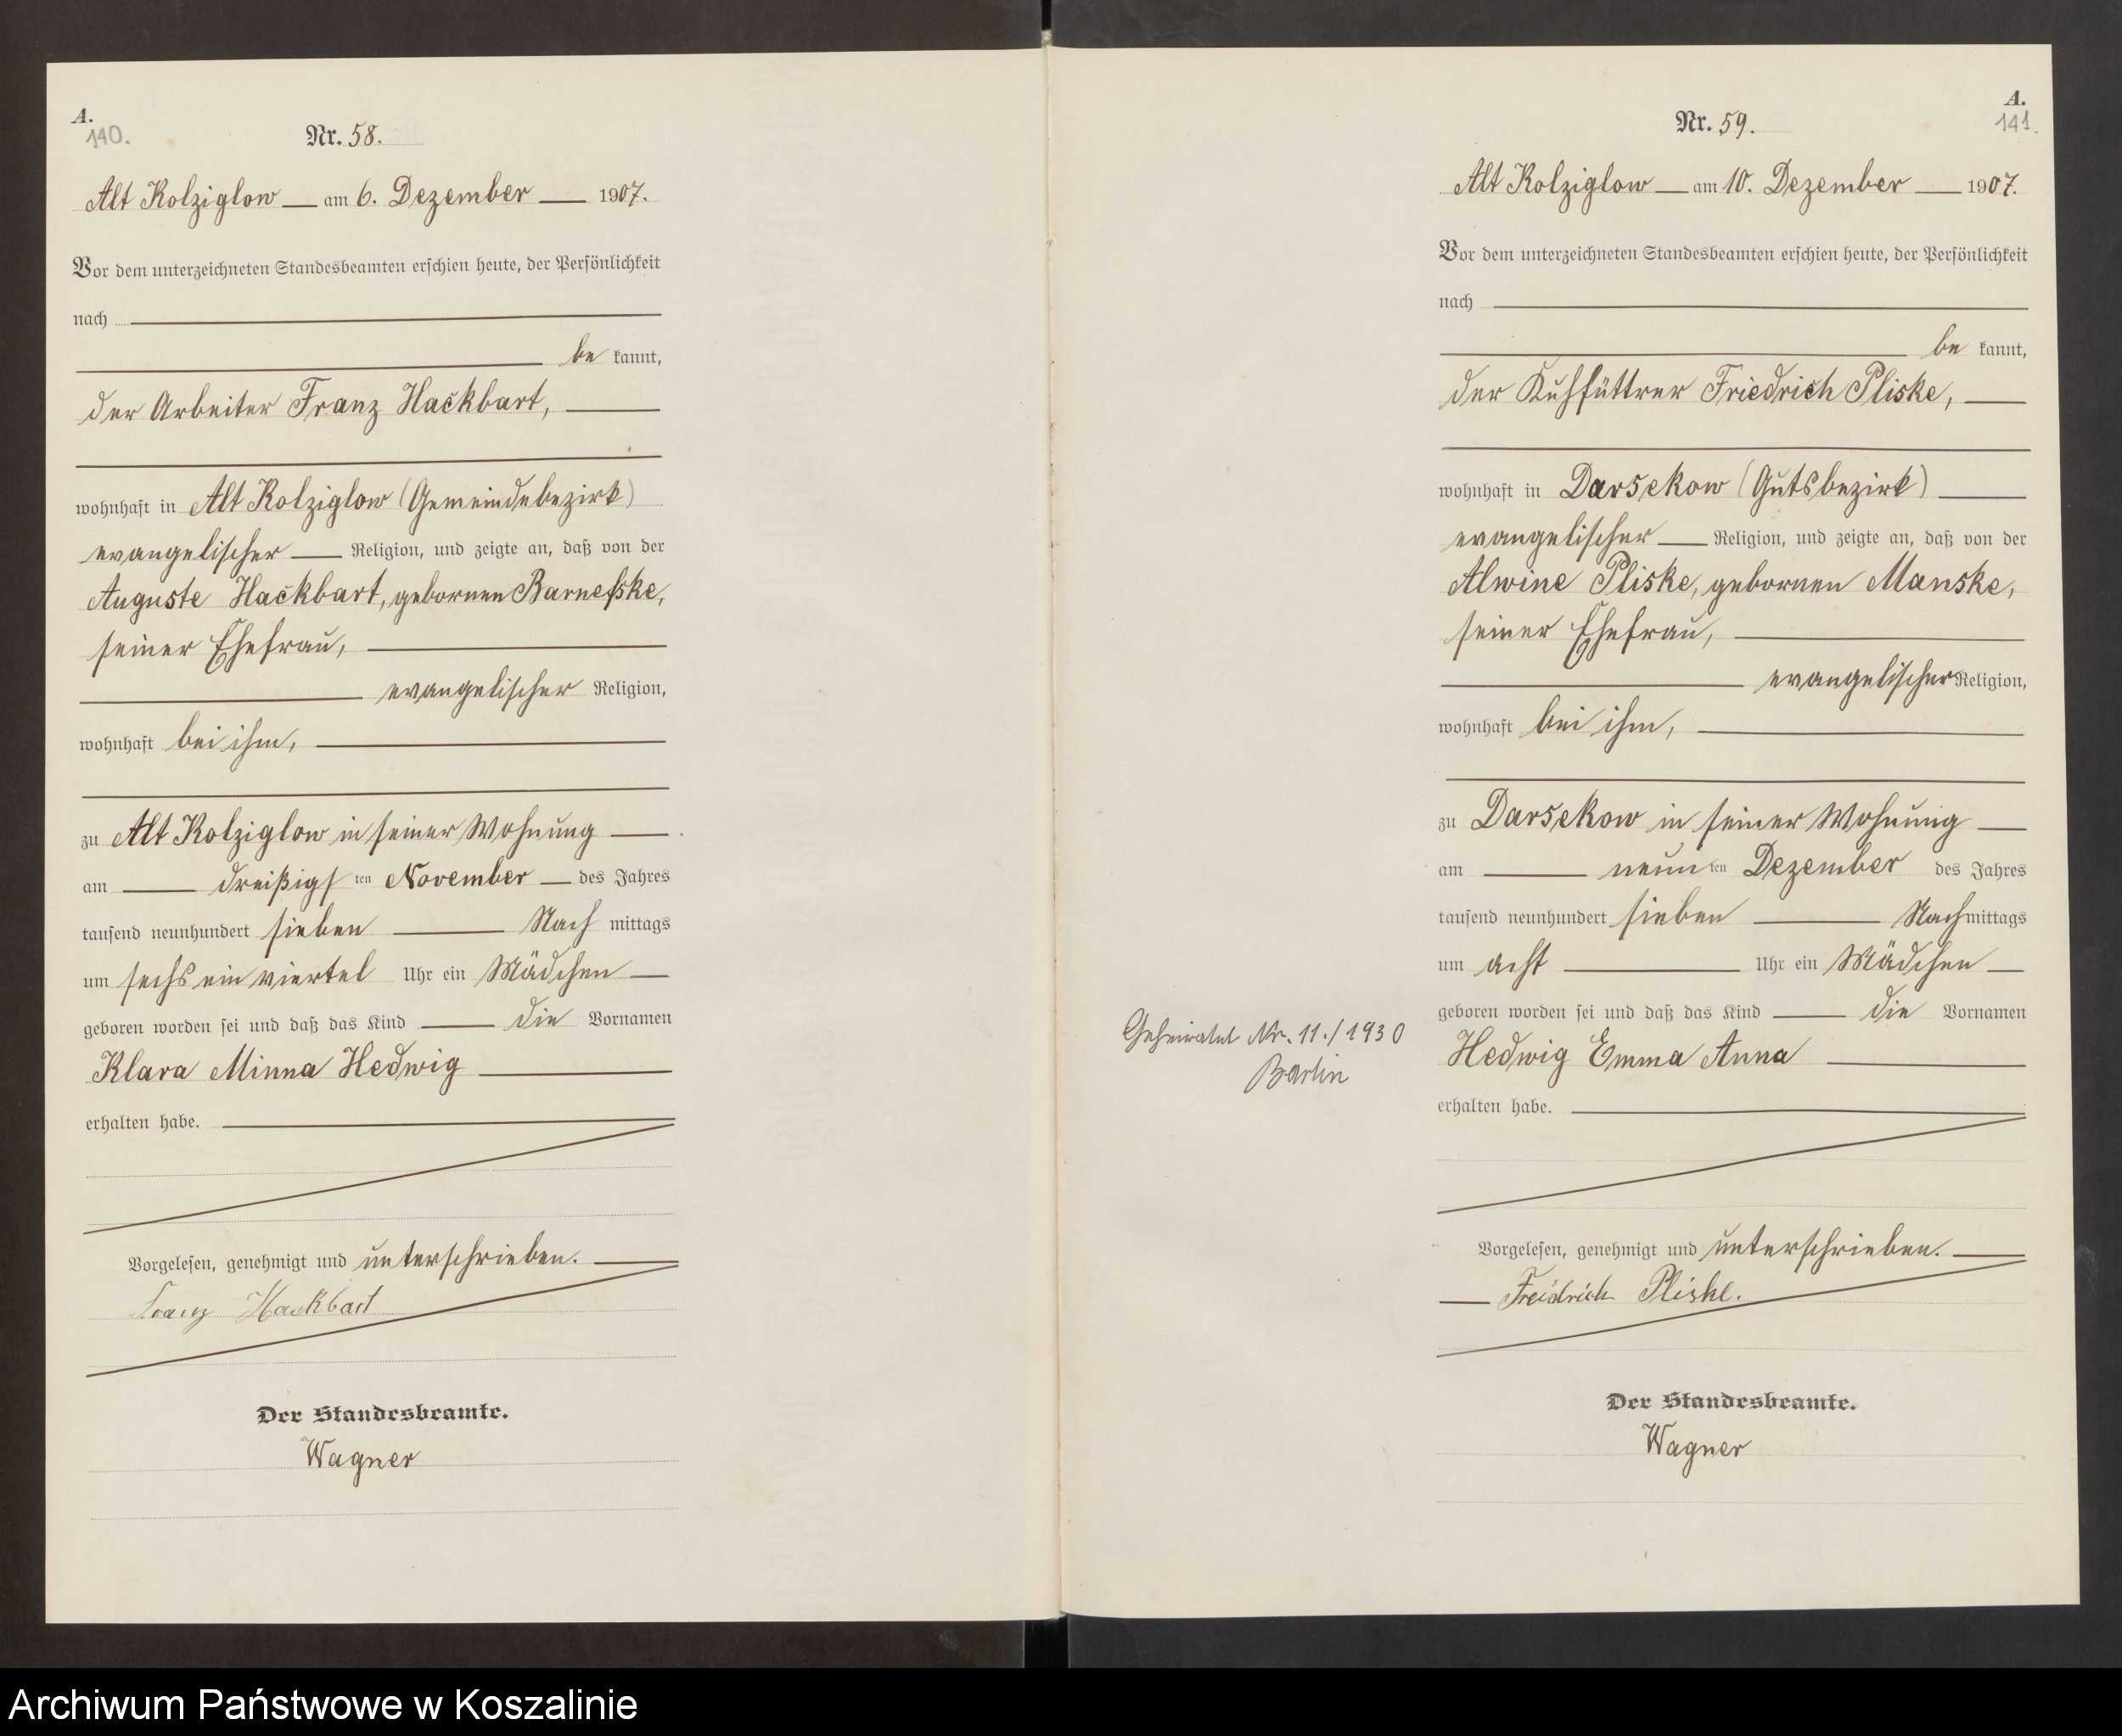 A.
140.
Nr. 58.
Alt Kolziglow am 6. Dezember 1907.
Vor dem unterzeichneten Standesbeamten erschien heute, der Persönlichkeit
nach
be kannt,
der Arbeiter Franz Hackbart,
wohnhaft in Alt Kolziglow (Gemeindebezirk)
evangelischer Religion, und zeigte an, daß von der
Auguste Hackbart, gebornen Barnefske,
seiner Ehefrau,
evangelischer Religion,
wohnhaft bei ihm,
zu Alt Kolziglow in seiner Wohnung
am dreißigsten November des Jahres
tausend neunhundert sieben Nachmittags
um sechs ein viertel Uhr ein Mädchen
geboren worden sei und daß das Kind die Vornamen
Klara Minna Hedwig
erhalten habe.
Vorgelesen, genehmigt und unterschrieben.
Franz Hackbart
Der Standesbeamte.
Wagner
A.
141.
Nr. 59.
Alt Kolziglow am 10. Dezember 1907.
Vor dem unterzeichneten Standesbeamten erschien heute, der Persönlichkeit
nach
be kannt,
der Kuhfüttrer Friedrich Pliske,
wohnhaft in Darsekow (Gutsbezirk)
evangelischer Religion, und zeigte an, daß von der
Alwine Pliske, gebornen Manske,
seiner Ehefrau,
evangelischer Religion,
wohnhaft bei ihm,
zu Darsekow in seiner Wohnung
am neunten Dezember des Jahres
tausend neunhundert sieben Nachmittags
um acht Uhr ein Mädchen
geboren worden sei und daß das Kind die Vornamen
Geheiratet Nr. 11./1930
Berlin
Hedwig Emma Anna
erhalten habe.
Vorgelesen, genehmigt und unterschrieben.
Freidrich Pliske.
Der Standesbeamte.
Wagner
Archiwum Państwowe w Koszalinie